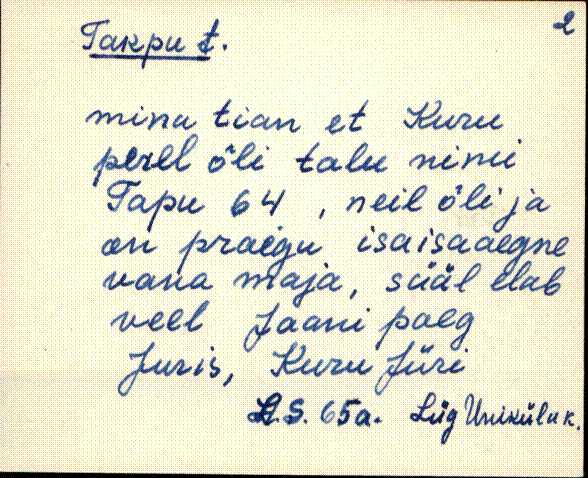 2
Takpu t.
mina tian et Kuru
perel õli talu nimi
Tapu 64, neil õli ja
on praegu isaisaaegne
vana maja, sääl elab
veel Jaani poeg
Juris, Kuru Jüri
L.S. 65a. Lüg Uniküla k.